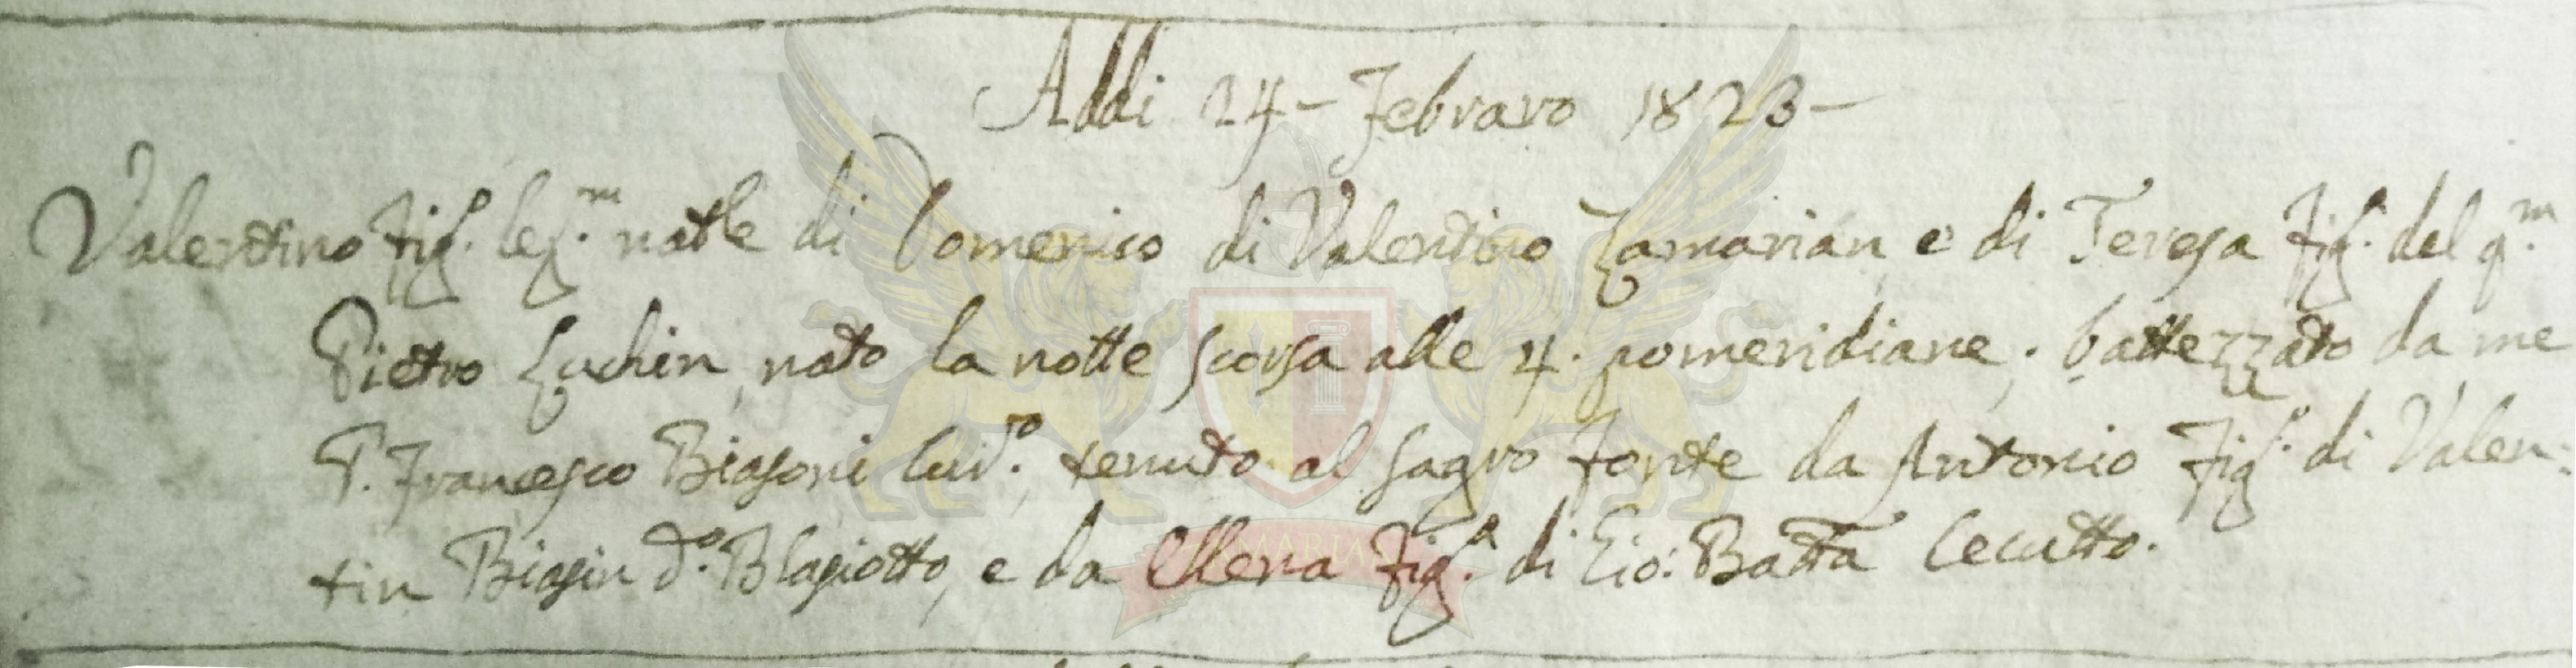 Addi 24 - Febraro 1823 -
Valentino fig.º leg.m natle di Domenico di Valentino Zamarian e di Teresa fig.a del q.m
Pietro Zuchin nato la notte scorsa alle 4. pomeridiane; battezzato da me
P. Francesco Biasoni Cur.º, tenuto al sagro fonte da Antonio fig.º di Valen:
tin Biasin d.º Blasiotto, e da Ellena fig.a di Gio: Batta Cecutto.